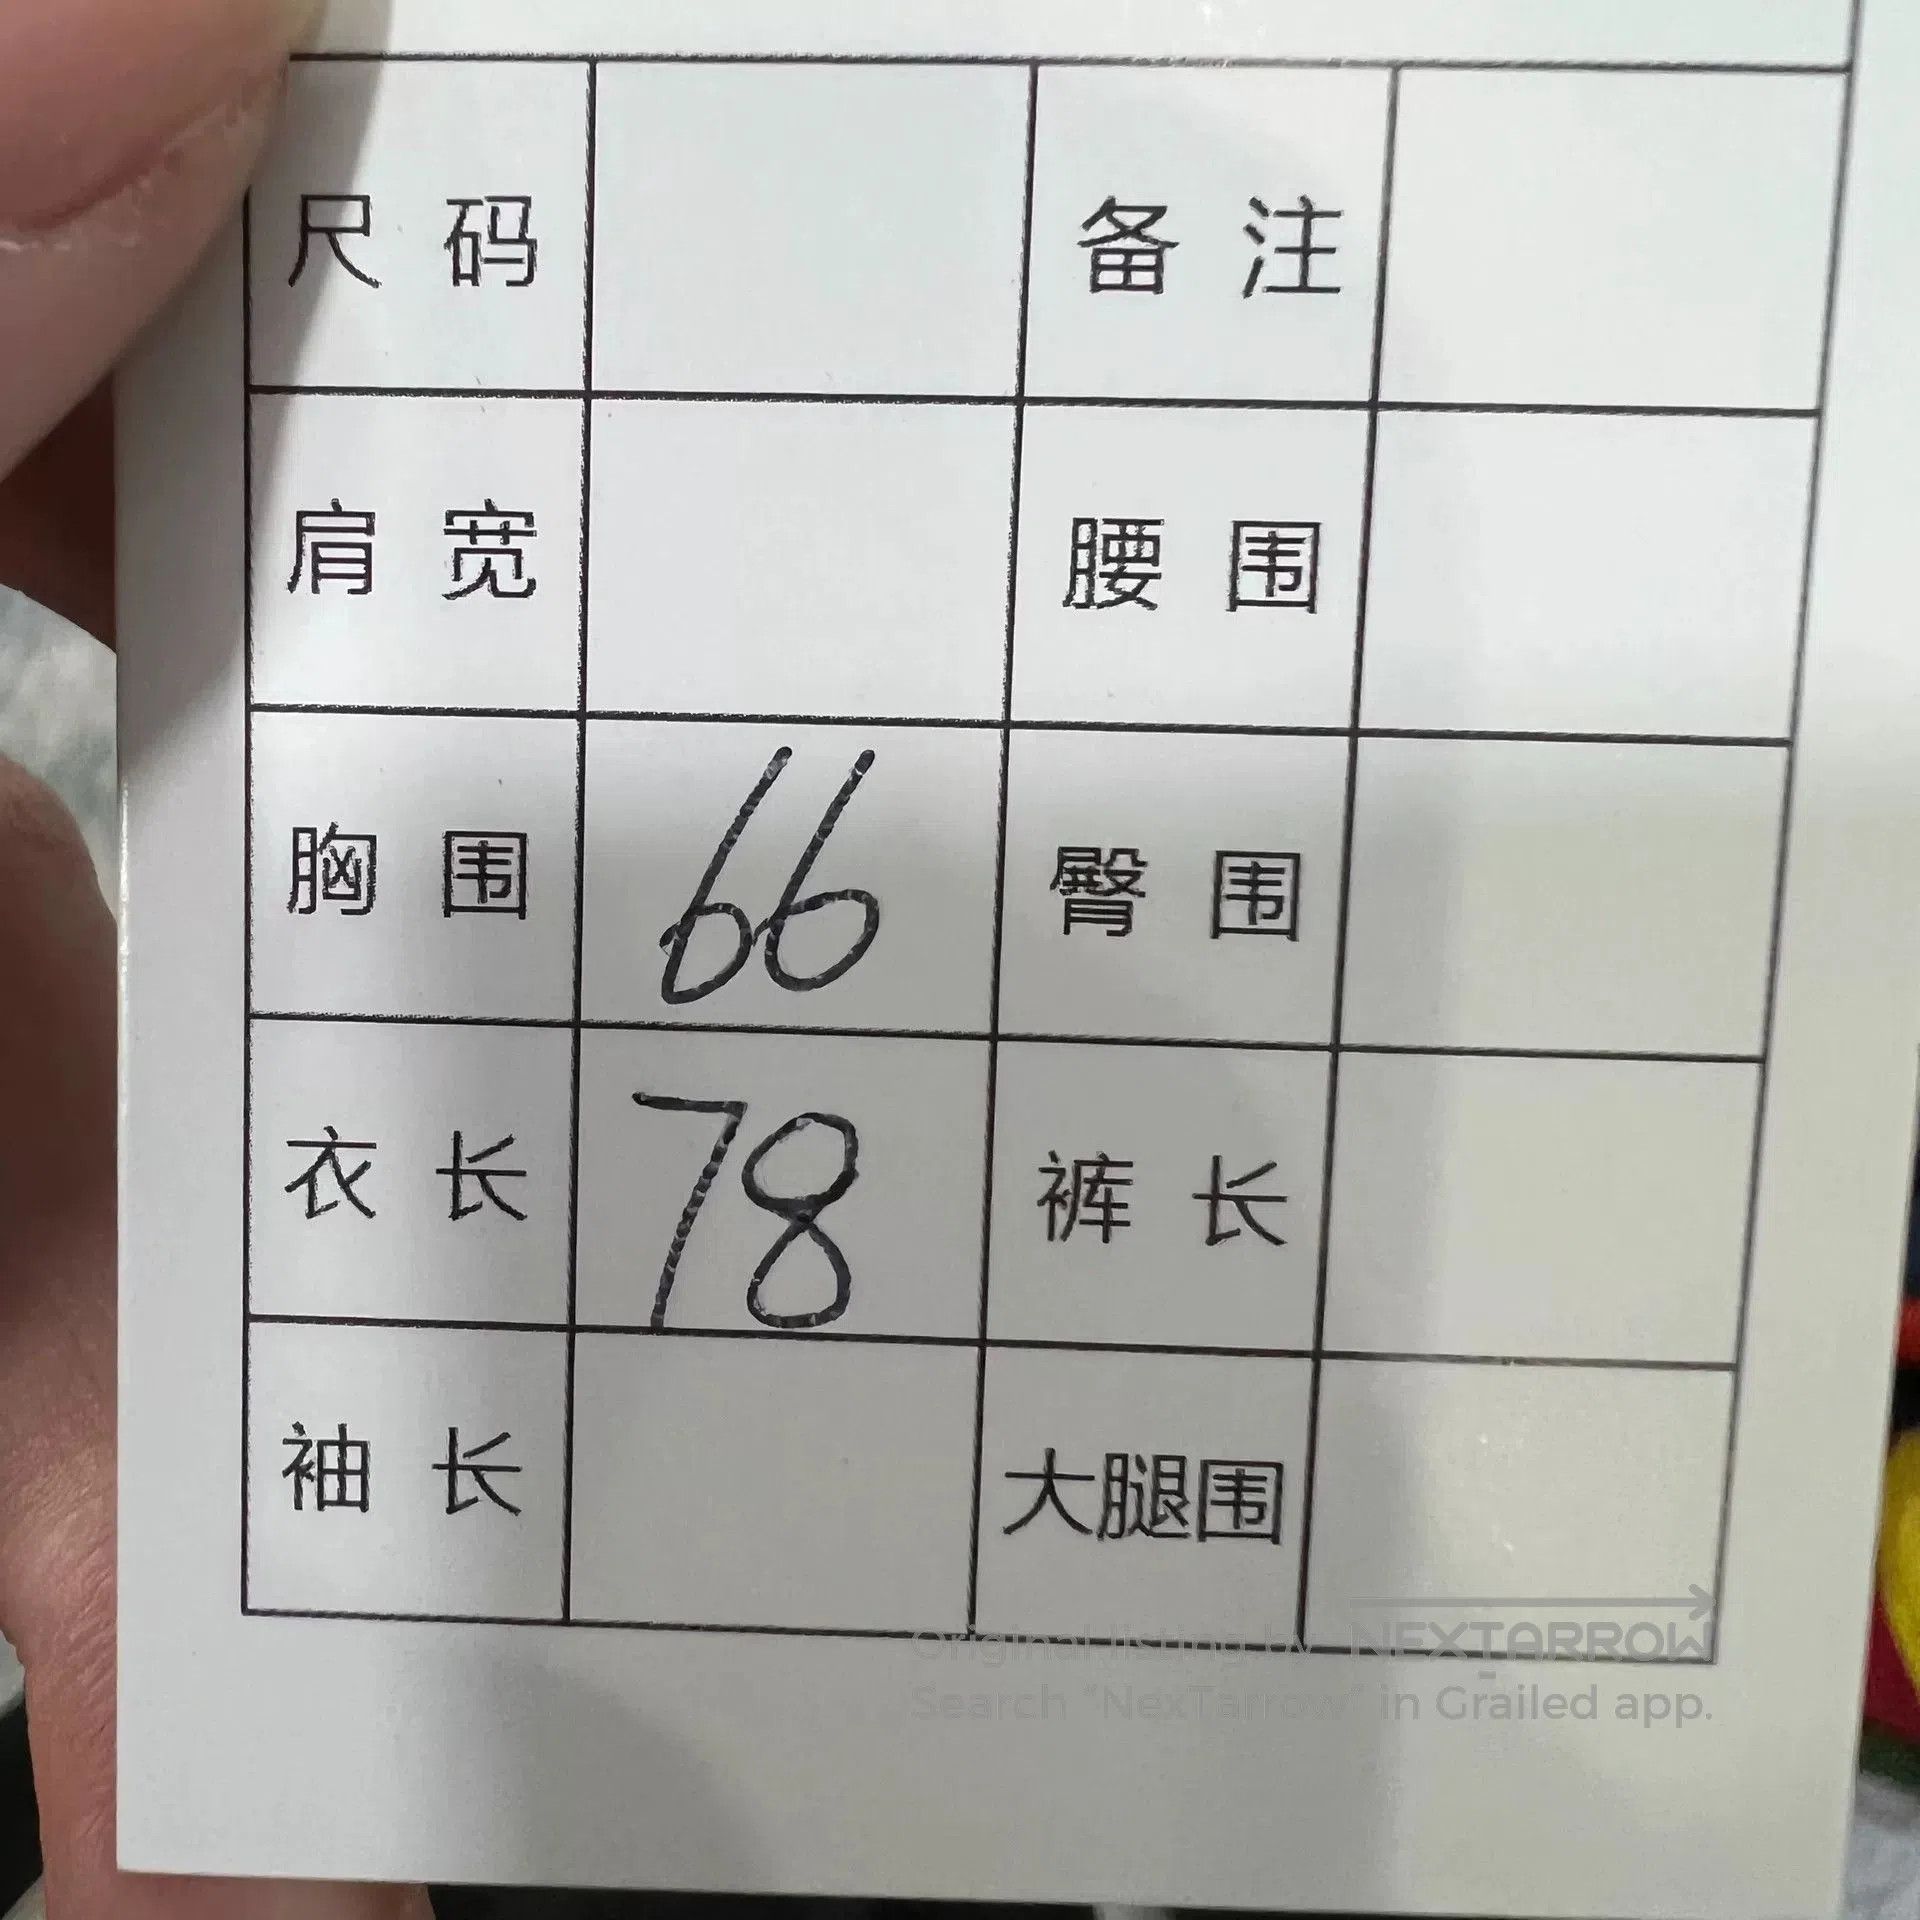 尺码 备注
肩宽 腰围
胸围 66 臀围
衣长 78 裤长
袖长 大腿围
Original listing by NEXTARROW
Search "NexTarrow" in Grailed app.